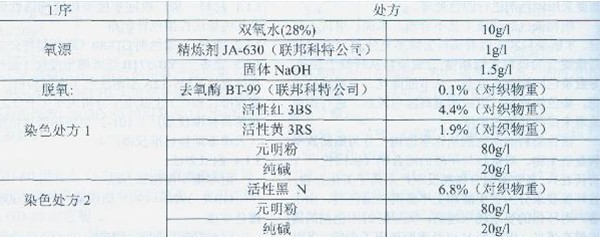 工序 处方
双氧水(28%) 10g/l
氧漂 精炼剂 JA-630（联邦科特公司） 1g/l
固体 NaOH 1.5g/l
脱氧: 去氧酶 BT-99（联邦科特公司） 0.1%（对织物重）
活性红 3BS 4.4%（对织物重）
染色处方 1 活性黄 3RS 1.9%（对织物重）
元明粉 80g/l
纯碱 20g/l
活性黑 N 6.8%（对织物重）
染色处方 2 元明粉 80g/l
纯碱 20g/l